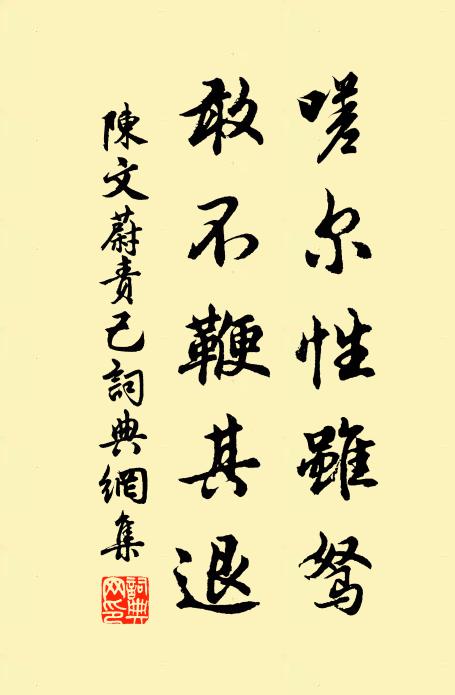 嗟尔性雖駑
敢不鞭其退
陳文蔚責己詞典網集
詞典网印